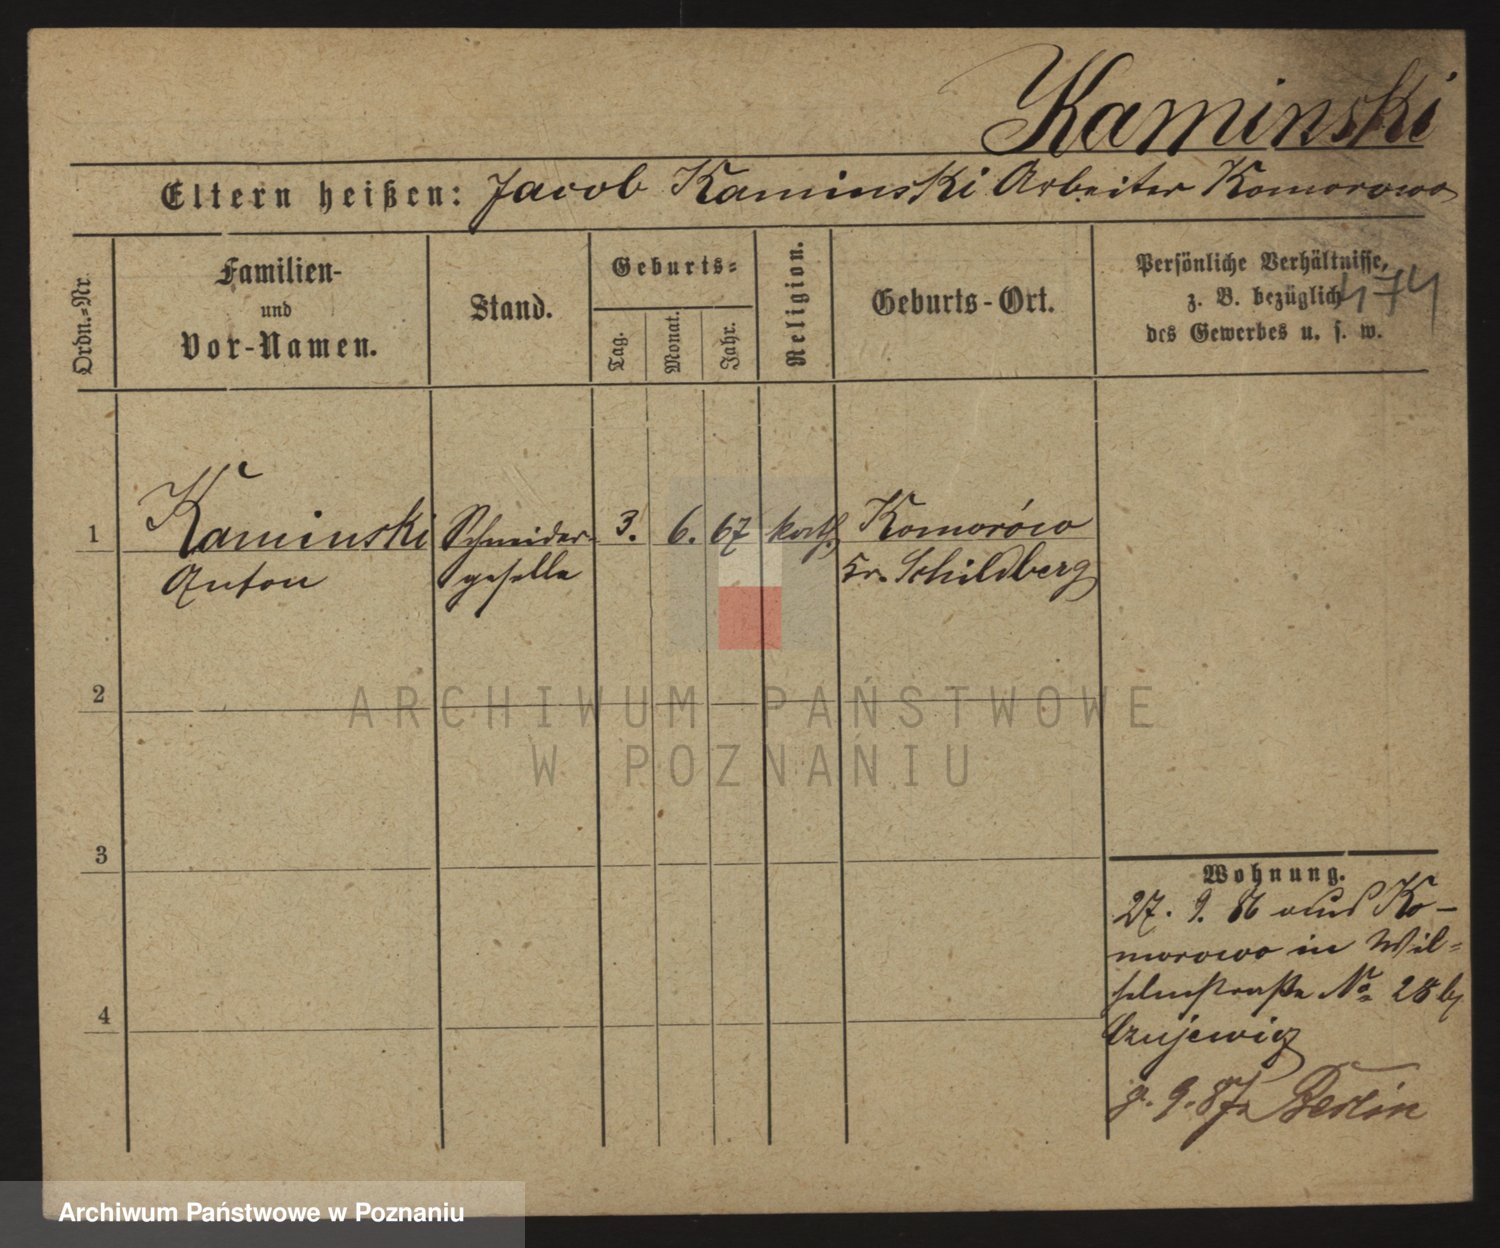 Kaminski
Eltern heißen: Jacob Kaminski Arbeiter Komorowo
Ordn.=Nr.
Familien-
und
Vor-Namen.
Stand.
Geburts=
Tag.
Monat.
Jahr.
Religion.
Geburts-Ort.
Persönliche Verhältnisse,
z. B. bezüglich
des Gewerbes u. s. w.
474
1 Kaminski Schneider- 3. 6. 67 kath. Komorówo
Anton geselle Kr. Schildberg
2
3
4
Wohnung.
27. 9. 86 aus Ko-
morowo in Wil=
helmstraße No 28 b/
9. 87 Berlin
ARCHIWUM PAŃSTWOWE
W POZNANIU
Archiwum Państwowe w Poznaniu